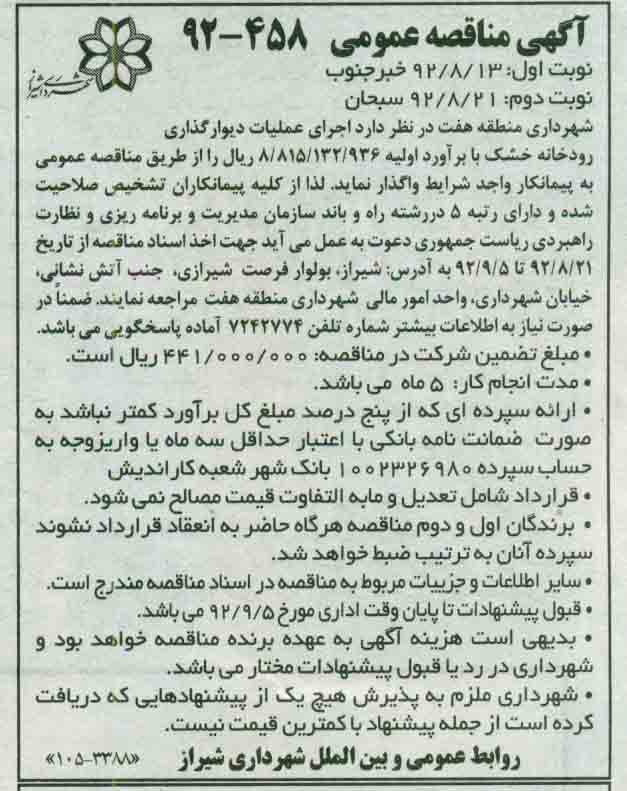 آگهی مناقصه عمومی ۴۵۸-۹۲
شهرداری شیراز
نوبت اول: ۹۲/۸/۱۳ خبرجنوب
نوبت دوم: ۹۲/۸/۲۱ سبحان
شهرداری منطقه هفت در نظر دارد اجرای عملیات دیوارگذاری
رودخانه خشک با برآورد اولیه ۸/۸۱۵/۱۳۲/۹۳۶ ریال را از طریق مناقصه عمومی
به پیمانکار واجد شرایط واگذار نماید. لذا از کلیه پیمانکاران تشخیص صلاحیت
شده و دارای رتبه ۵ در رشته راه و باند سازمان مدیریت و برنامه ریزی و نظارت
راهبردی ریاست جمهوری دعوت به عمل می آید جهت اخذ اسناد مناقصه از تاریخ
۹۲/۸/۲۱ تا ۹۲/۹/۵ به آدرس: شیراز، بولوار فرصت شیرازی، جنب آتش نشانی،
خیابان شهرداری، واحد امور مالی شهرداری منطقه هفت مراجعه نمایند. ضمناً در
صورت نیاز به اطلاعات بیشتر شماره تلفن ۷۲۴۲۷۷۴ آماده پاسخگویی می باشد.
• مبلغ تضمین شرکت در مناقصه: ۴۴۱/۰۰۰/۰۰۰ ریال است.
• مدت انجام کار: ۵ ماه می باشد.
• ارائه سپرده ای که از پنج درصد مبلغ کل برآورد کمتر نباشد به
صورت ضمانت نامه بانکی با اعتبار حداقل سه ماه یا واریزوجه به
حساب سپرده ۱۰۰۲۳۲۶۹۸۰ بانک شهر شعبه کاراندیش
• قرارداد شامل تعدیل و مابه التفاوت قیمت مصالح نمی شود.
• برندگان اول و دوم مناقصه هرگاه حاضر به انعقاد قرارداد نشوند
سپرده آنان به ترتیب ضبط خواهد شد.
• سایر اطلاعات و جزییات مربوط به مناقصه در اسناد مناقصه مندرج است.
• قبول پیشنهادات تا پایان وقت اداری مورخ ۹۲/۹/۵ می باشد.
• بدیهی است هزینه آگهی به عهده برنده مناقصه خواهد بود و
شهرداری در رد یا قبول پیشنهادات مختار می باشد.
• شهرداری ملزم به پذیرش هیچ یک از پیشنهادهایی که دریافت
کرده است از جمله پیشنهاد با کمترین قیمت نیست.
روابط عمومی و بین الملل شهرداری شیراز «۱۰۵-۳۳۸۸»